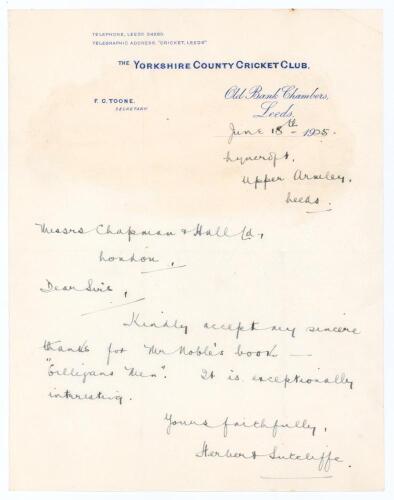 TELEPHONE, LEEDS 24260.
TELEGRAPHIC ADDRESS, "CRICKET, LEEDS"
THE YORKSHIRE COUNTY CRICKET CLUB.
F. C. TOONE,
SECRETARY
Old Bank Chambers,
Leeds,
June 18th - 1925.
Lyncroft,
Upper Armley,
Leeds.
Messrs Chapman & Hall Ld,
London,
Dear Sirs,
Kindly accept my sincere
thanks for Mr Noble's book —
"Gilligans Men". It is exceptionally
interesting.
Yours faithfully,
Herbert Sutcliffe.